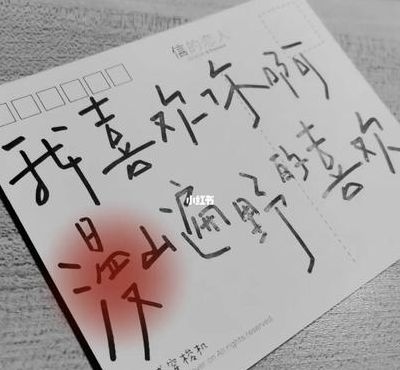 信的恋人
我喜欢你啊
小红书
漫山遍野的喜欢
reserved.